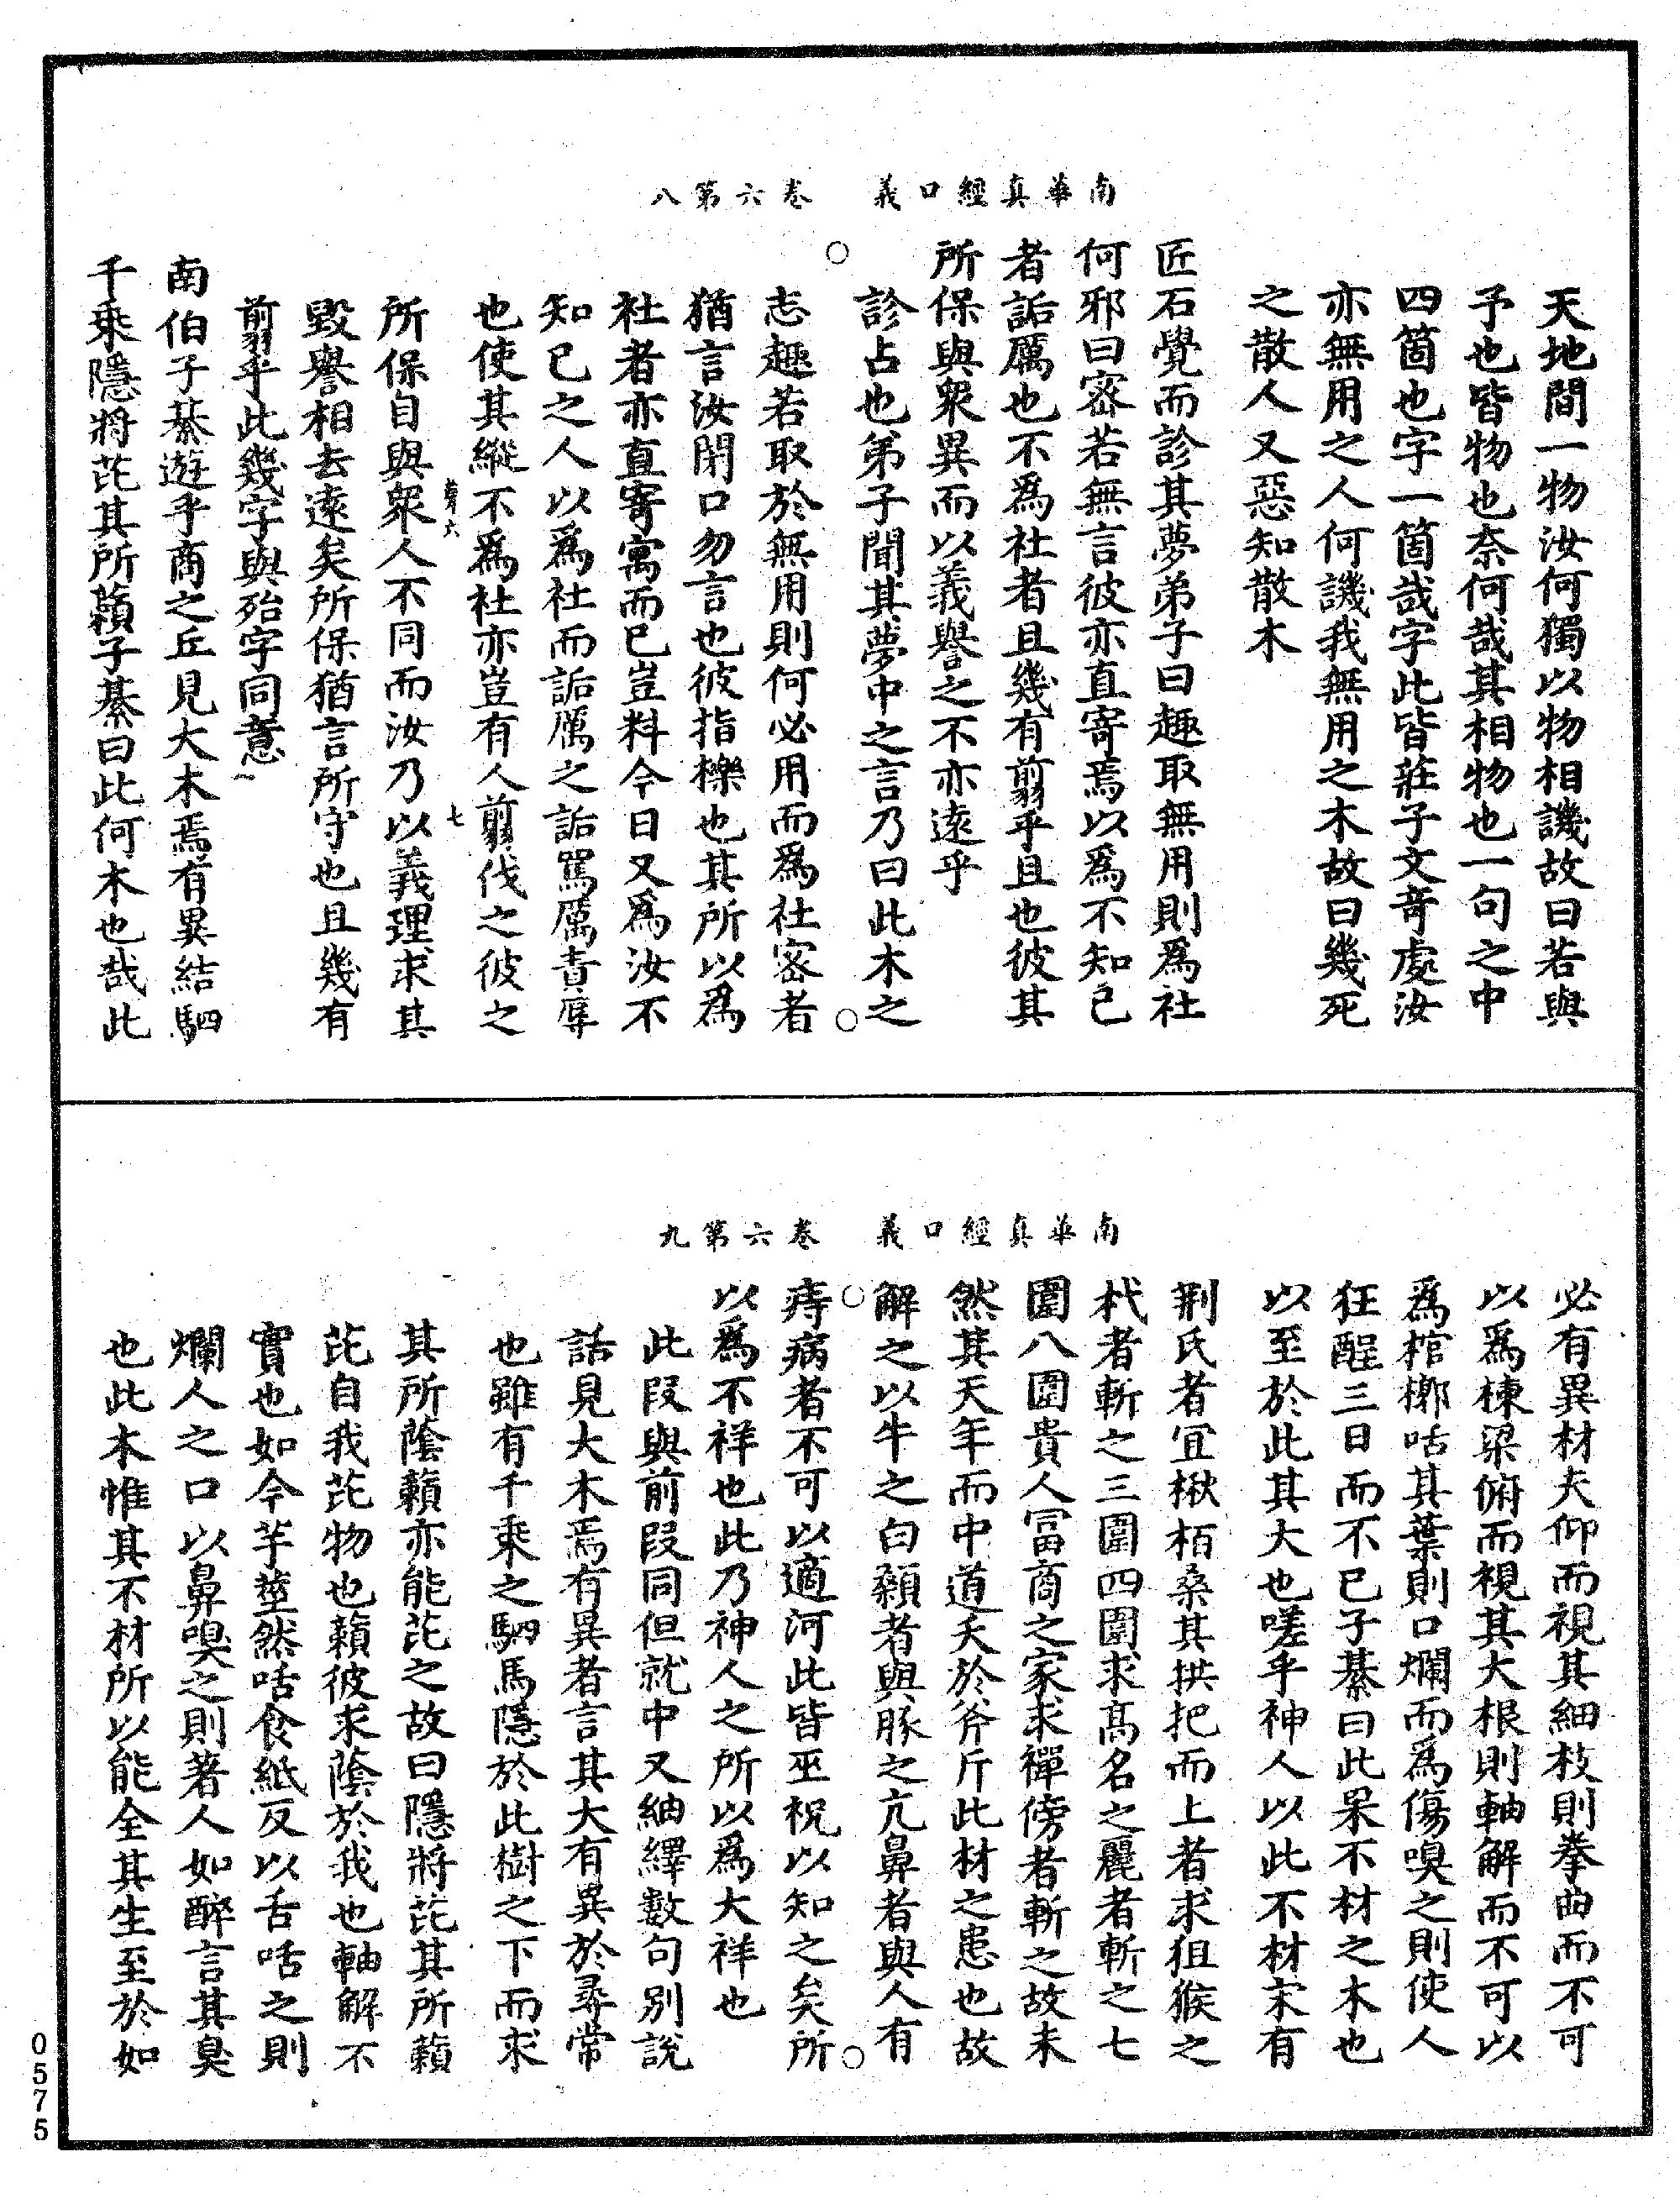 南華真經口義　卷六第八
天地間一物汝何獨以物相譏故曰若與
予也皆物也奈何哉其相物也一句之中
四箇也字一箇哉字此皆莊子文竒處汝
亦無用之人何譏我無用之木故曰幾死
之散人又惡知散木
匠石覺而診其夢弟子曰趣取無用則為社
何邪曰宻若無言彼亦直寄焉以為不知己
者詬厲也不為社者且幾有翦乎且也彼其
所保與衆異而以義譽之不亦遠乎
診占也弟子聞其夢中之言乃曰此木之
志趣若取於無用則何必用而為社宻者
猶言汝閉口勿言也彼指櫟也其所以為
社者亦直寄寓而已豈料今日又為汝不
知已之人以為社而詬厲之詬罵厲責辱
也使其縱不為社亦豈有人翦伐之彼之
七
所保自與衆人不同而汝乃以義理求其
毀譽相去遠矣所保猶言所守也且幾有
翦乎此幾字與殆字同意
南伯子綦遊乎商之丘見大木焉有異結駟
千乘隱將芘其所藾子綦曰此何木也哉此
南華真經口義　卷六第九
必有異材夫仰而視其細枝則拳曲而不可
以為棟梁俯而視其大根則軸解而不可以
為棺槨咶其葉則口爛而為傷嗅之則使人
狂酲三日而不已子綦曰此果不材之木也
以至於此其大也嗟乎神人以此不材宋有
荆氏者宜楸栢桑其拱把而上者求狙猴之
杙者斬之三圍四圍求髙名之麗者斬之七
圍八圍貴人富商之家求禪傍者斬之故未
然其天年而中道夭於斧斤此材之患也故
解之以牛之白顙者與豚之亢鼻者與人有
痔病者不可以適河此皆巫祝以知之矣所
以為不祥也此乃神人之所以為大祥也
此段與前段同但就中又紬繹數句别說
話見大木焉有異者言其大有異於尋常
也雖有千乘之駟馬隱於此樹之下而求
其所蔭藾亦能芘之故曰隱將芘其所藾
芘自我芘物也藾彼求蔭於我也軸解不
實也如今芋莖然咶食紙反以舌咶之則
爛人之口以鼻嗅之則著人如醉言其臭
也此木惟其不材所以能全其生至於如
0575